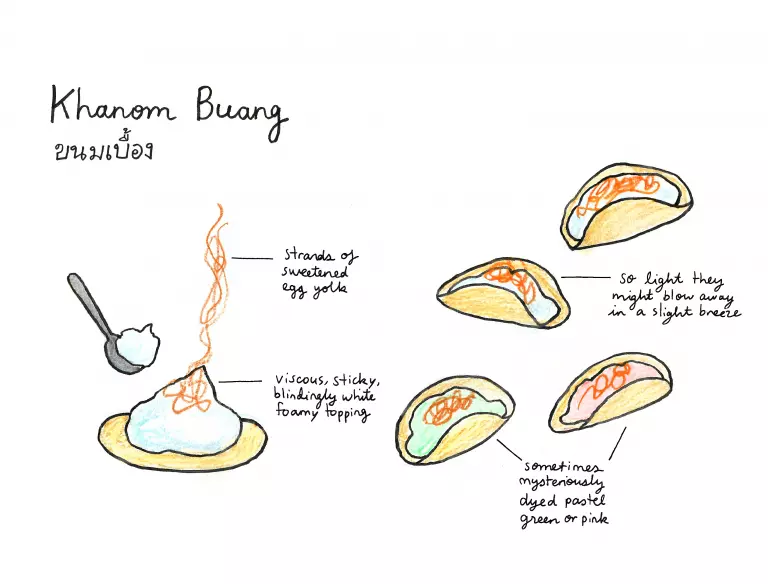 Khanom Buang
ขนมเบื้อง
strands of
sweetened
egg yolk
viscous, sticky,
blindingly white
foamy topping
so light they
might blow away
in a slight breeze
sometimes
mysteriously
dyed pastel
green or pink